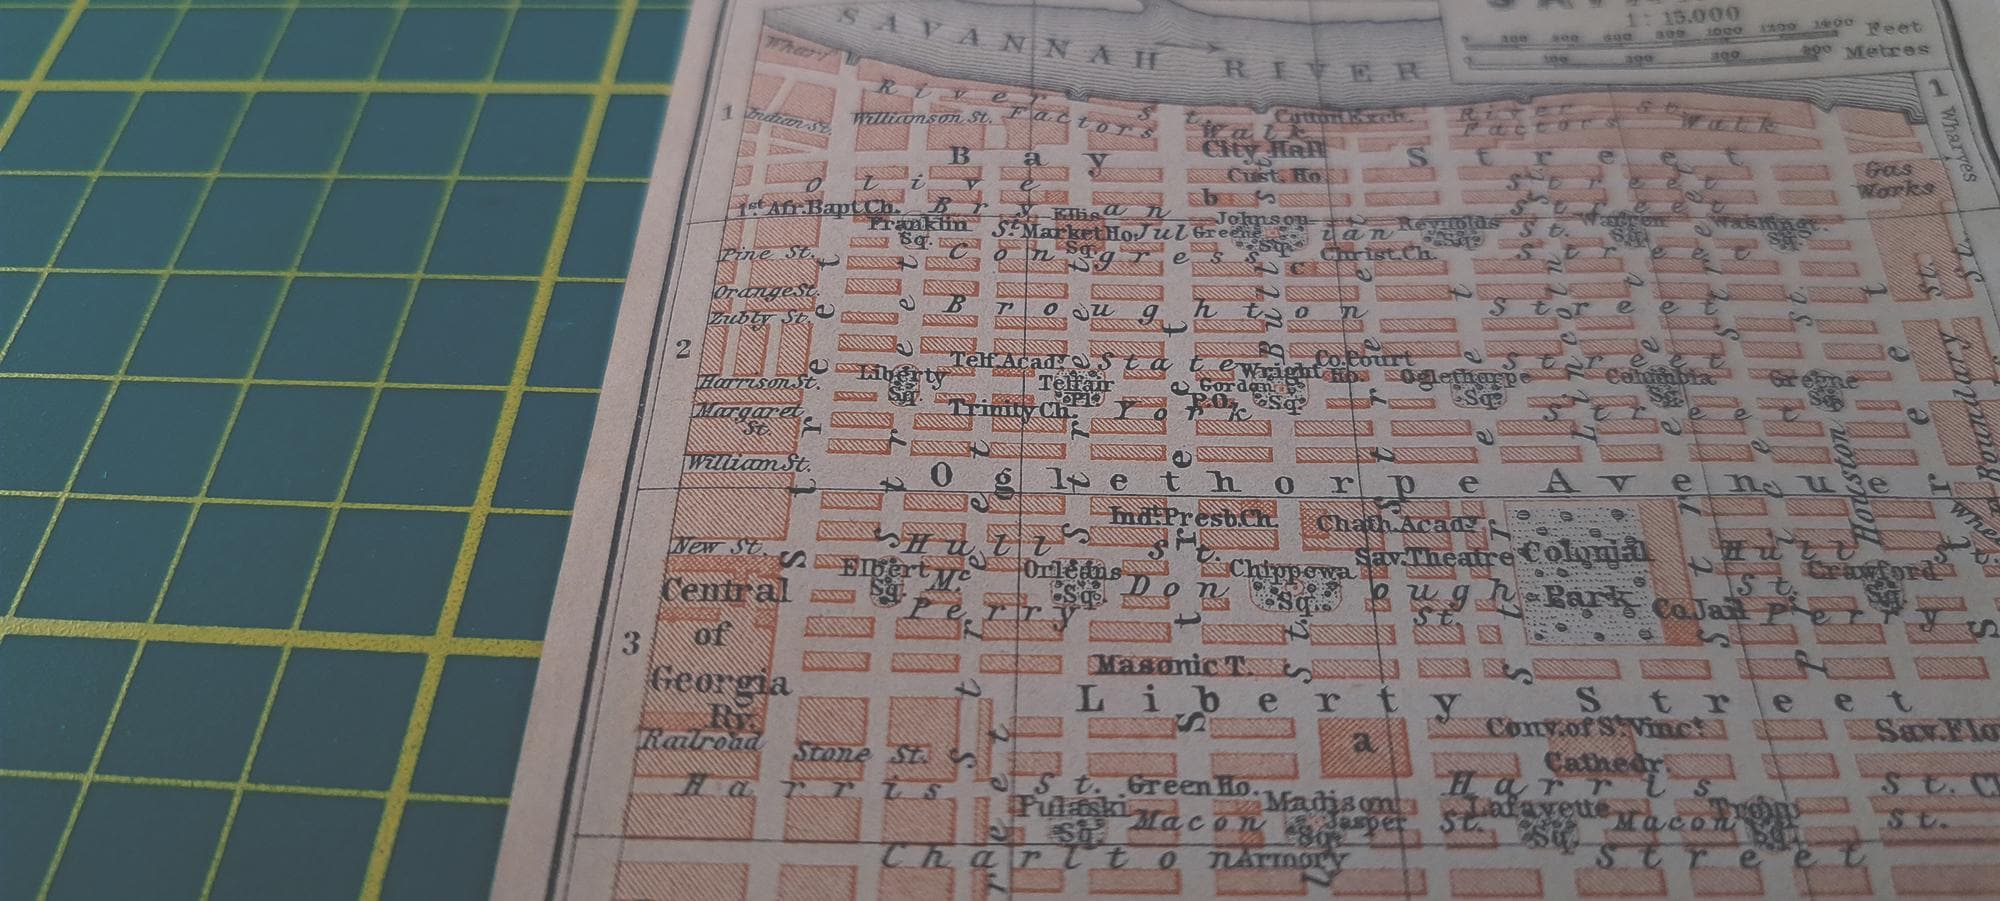 1 : 15.000
Feet
Metres
SAVANNAH RIVER
Wharf
River St.
River St.
1
Indian St.
Williamson St.
Factors Walk
Cotton Exch.
Factors Walk
1
Wharves
Bay Street
City Hall
Cust. Ho.
b
Gas
Works
Olive
Street
1st Afr. Bapt. Ch.
Bryan
Street
Franklin
Sq.
Ellis
Sq.
St.
Market Ho.
Julian
St.
Johnson
Sq.
Greene
Reynolds
Sq.
Warren
Sq.
Washingt.
Sq.
Pine St.
Congress Street
c
Christ Ch.
Orange St.
Zubly St.
Broughton Street
2
Telf. Acady.
State Street
Wright
Sq.
Gordon
Co. Court
Ho.
P.O.
Liberty
Sq.
Telfair
Pl.
Oglethorpe
Sq.
Columbia
Sq.
Greene
Sq.
Harrison St.
Margaret
St.
Trinity Ch.
York Street
William St.
Oglethorpe Avenue
Houston
Boundary
Bull
Lincoln
Indt. Presb. Ch.
Chath. Acady.
New St.
Hull St.
Sav. Theatre
Colonial
Park
Hull
St.
Elbert
Sq.
Orleans
Sq.
Chippewa
Sq.
Crawford
Sq.
Mc Donough
St.
Central
of
Georgia
Ry.
Perry
Co. Jail
Perry
3
Masonic T.
Liberty Street
Railroad
Stone St.
a
Conv. of St. Vinct.
Cathedr.
Sav. Flo
Harris St.
Green Ho.
Harris St.
Pulaski
Sq.
Macon St.
Madison
Sq.
Jasper
Lafayette
Sq.
Macon
Troup
Sq.
St.
Charlton Street
Armory